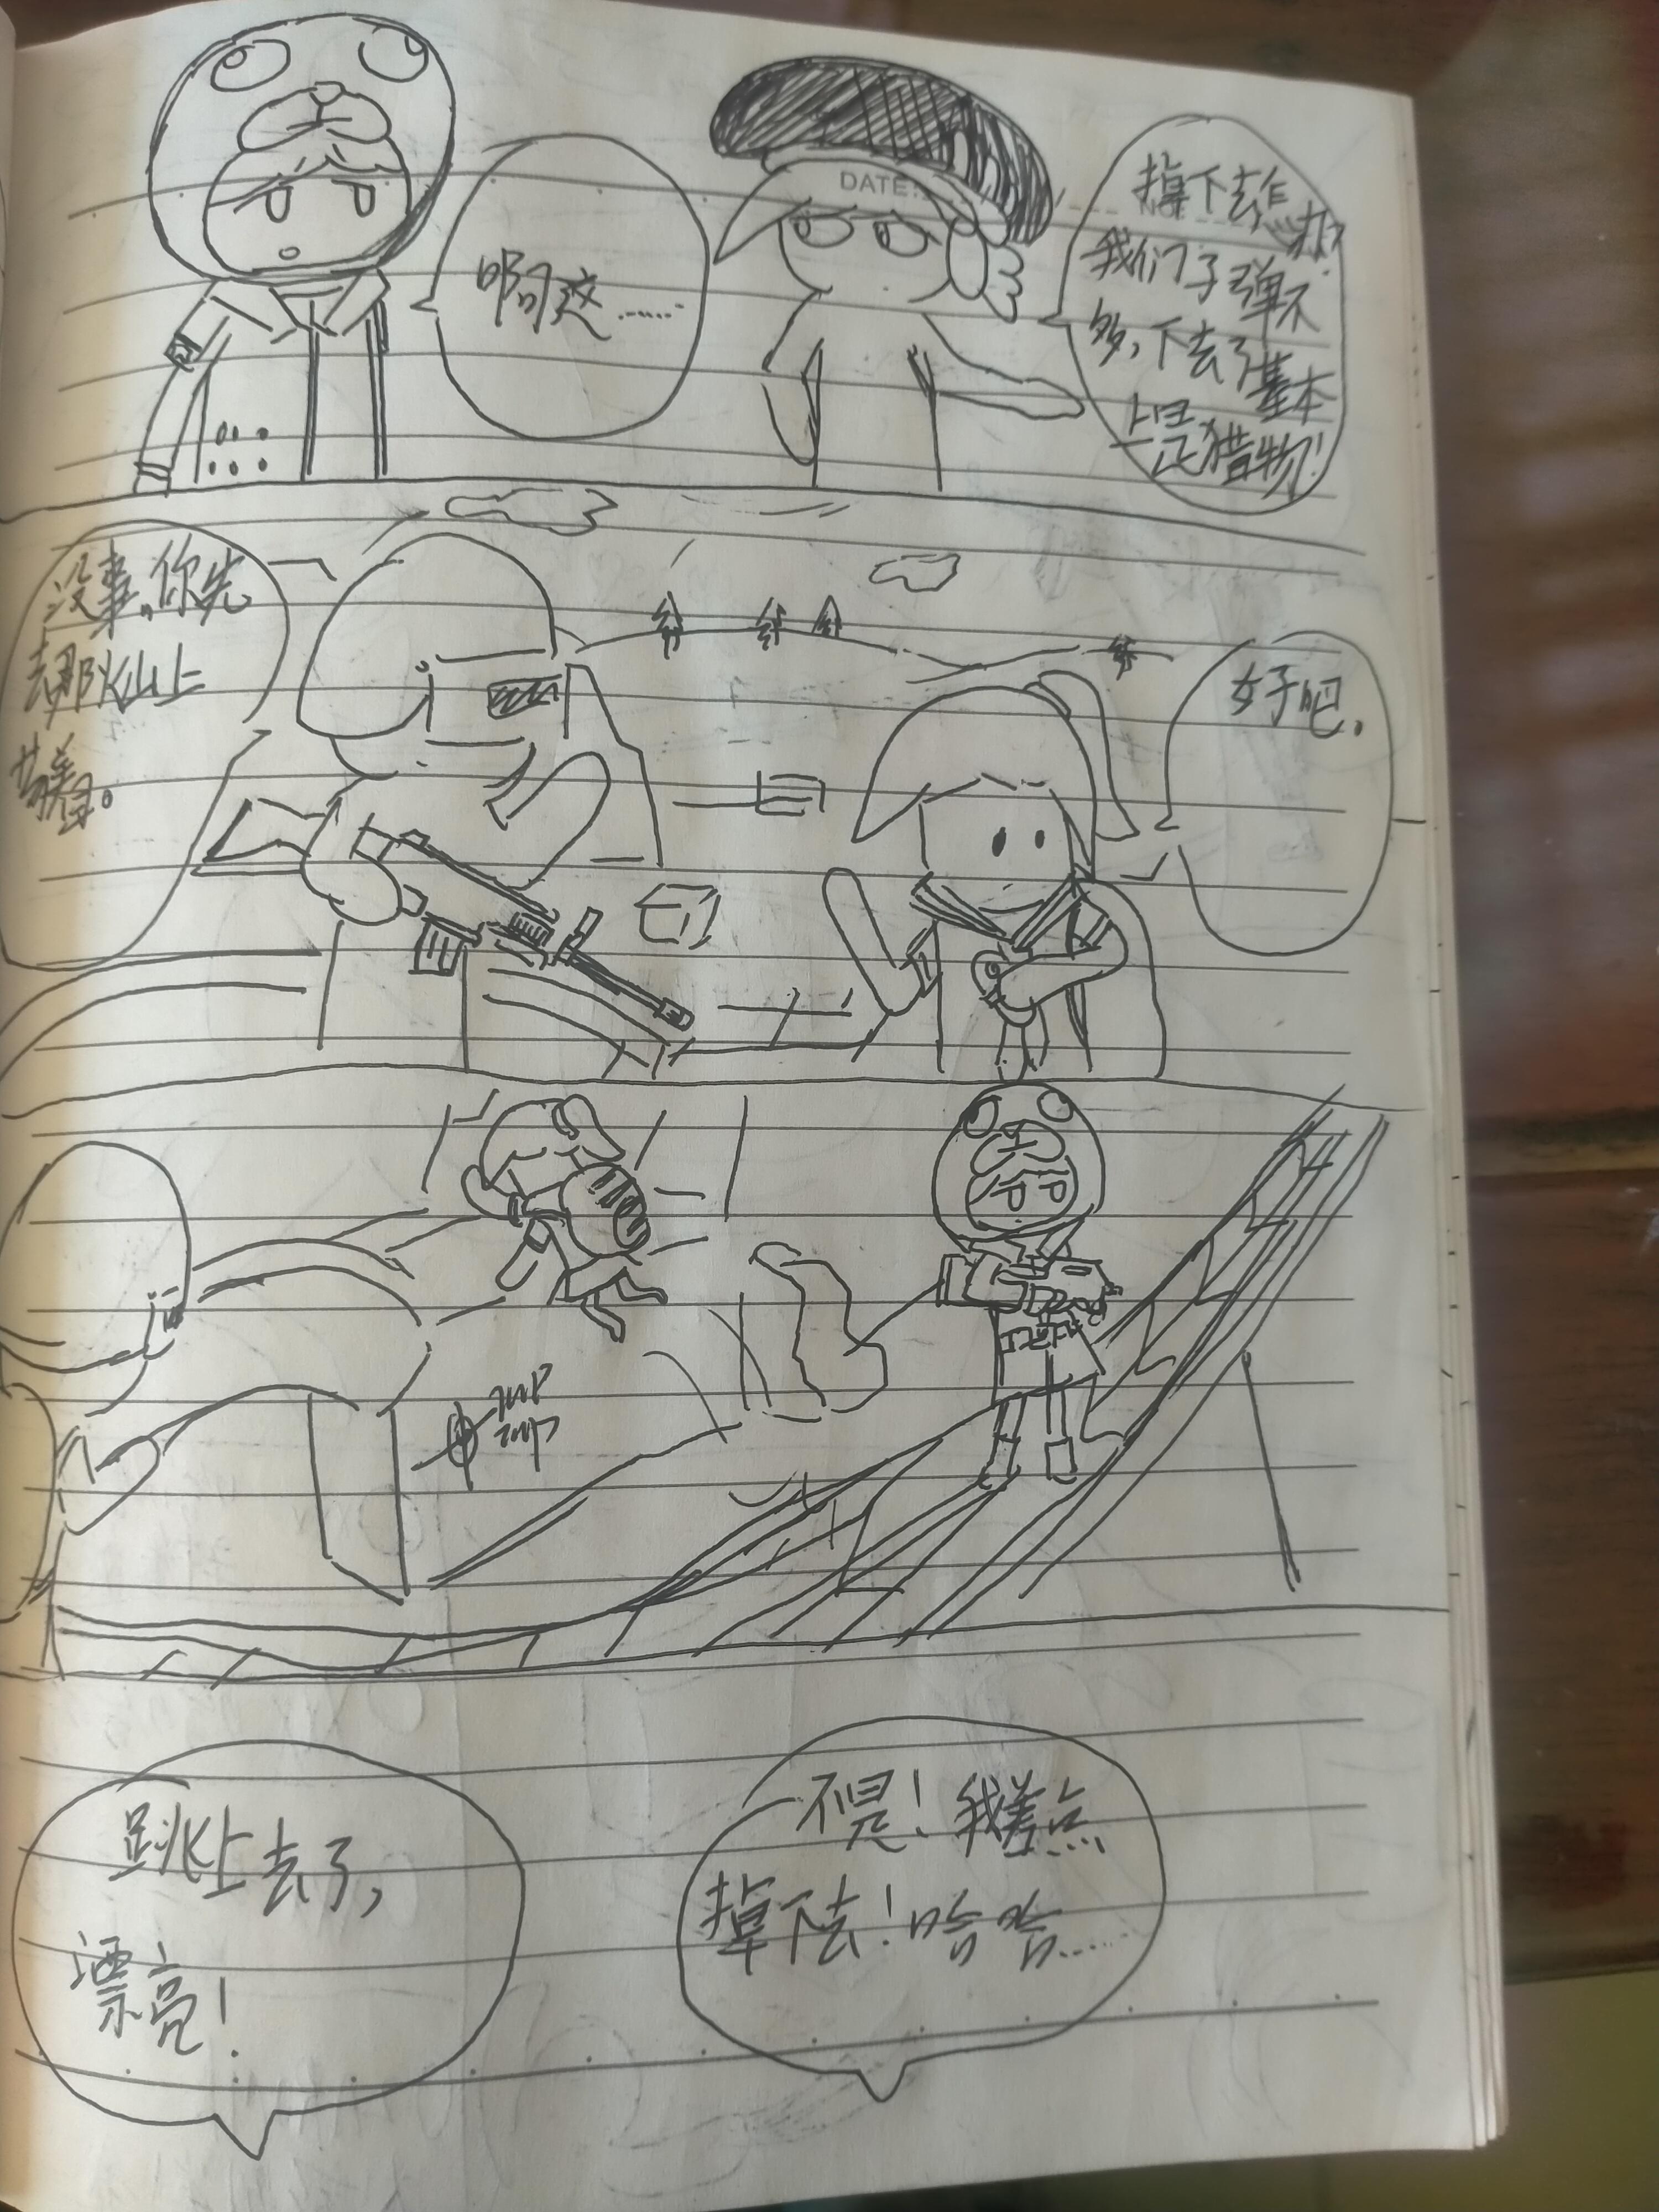 啊这......
DATE:
NO:
掉下去怎办?
我们子弹不
多,下去了基本
上是猎物!
没事,你先
去那火山上
苟着。
好吧.
跳上去了,
漂亮!
不是!我差点
掉下去!哈哈......